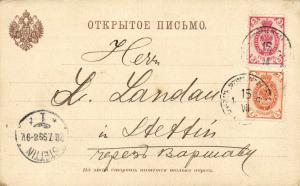 ОТКРЫТОЕ ПИСЬМО.
Herrn
L. Landau
in
Stettin
черезъ Варшаву
На этой сторонѣ пишется только адресъ.
STETTIN
15
VII